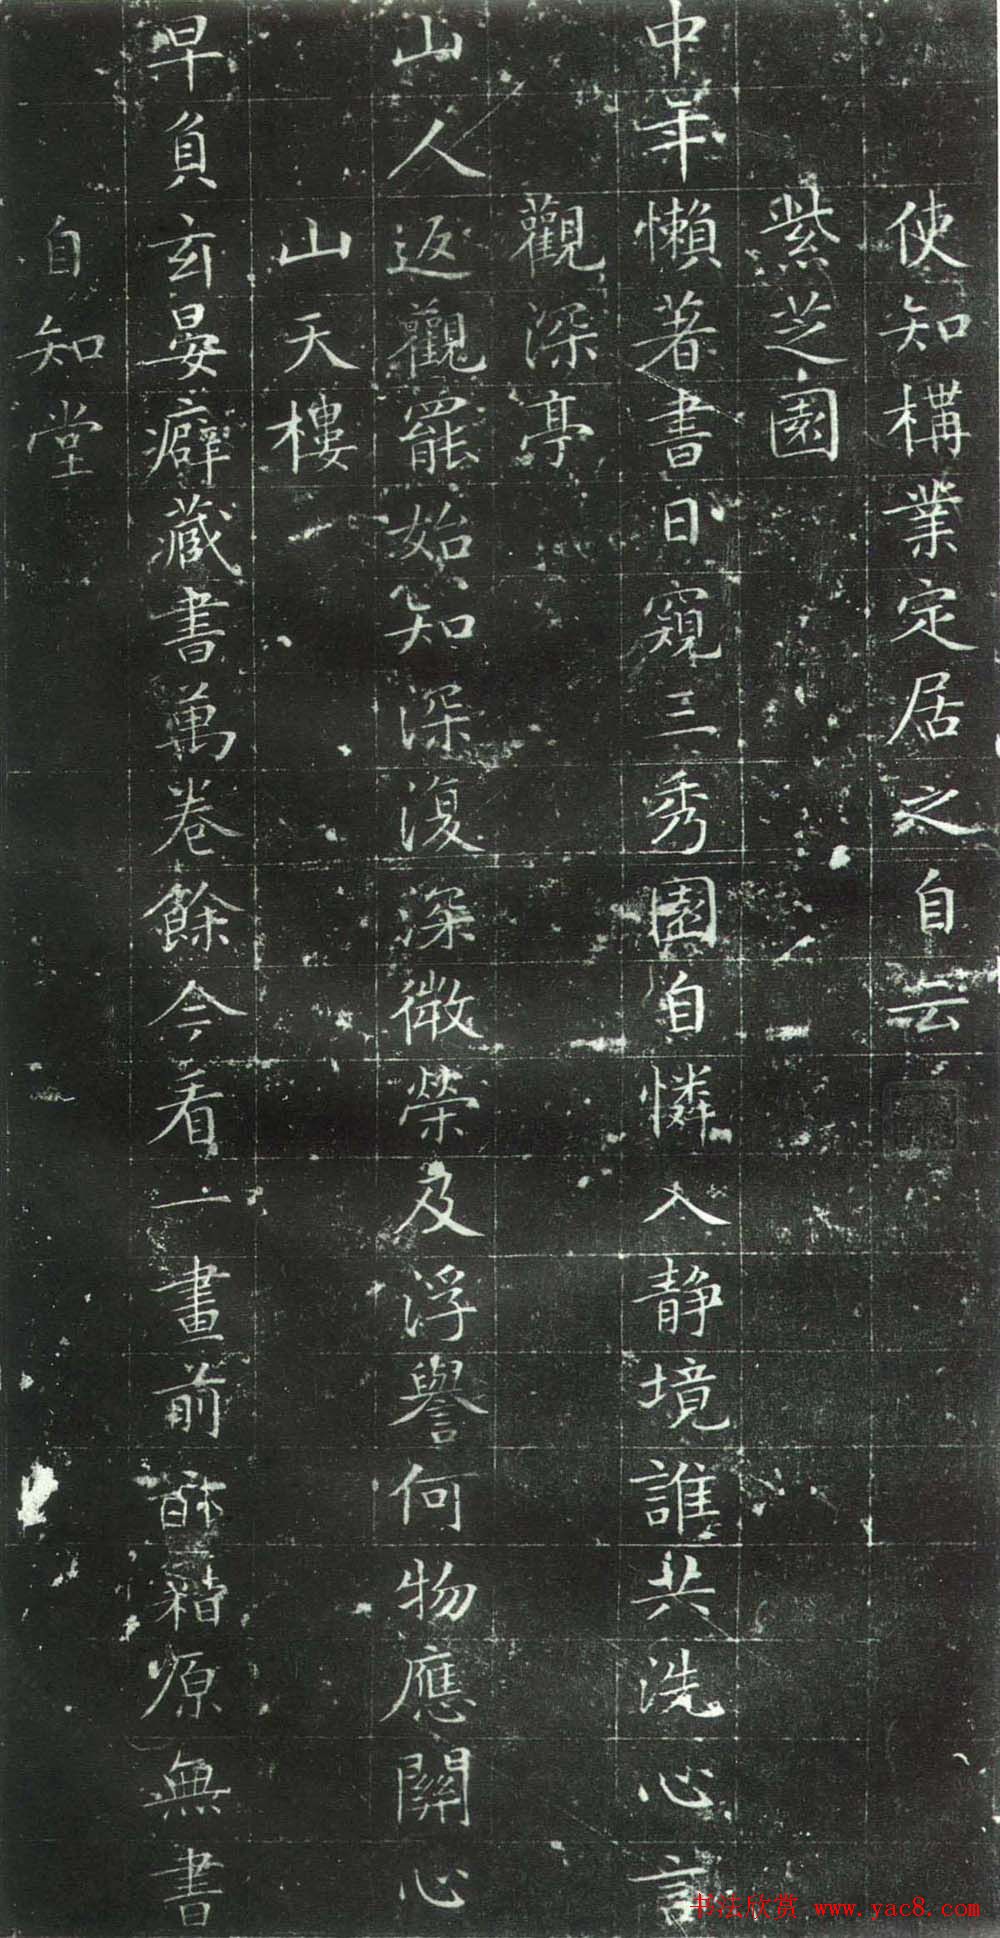 使知構業定居之自云
紫芝園
中年懶著書日窺三秀園自憐入靜境誰共洗心言
觀深亭
山人返觀罷始知深復深微榮及浮譽何物應關心
山天樓
早負玄晏癖藏書萬卷餘今看一畫前籍原無書
自知堂
书法欣赏 www.yac8.com